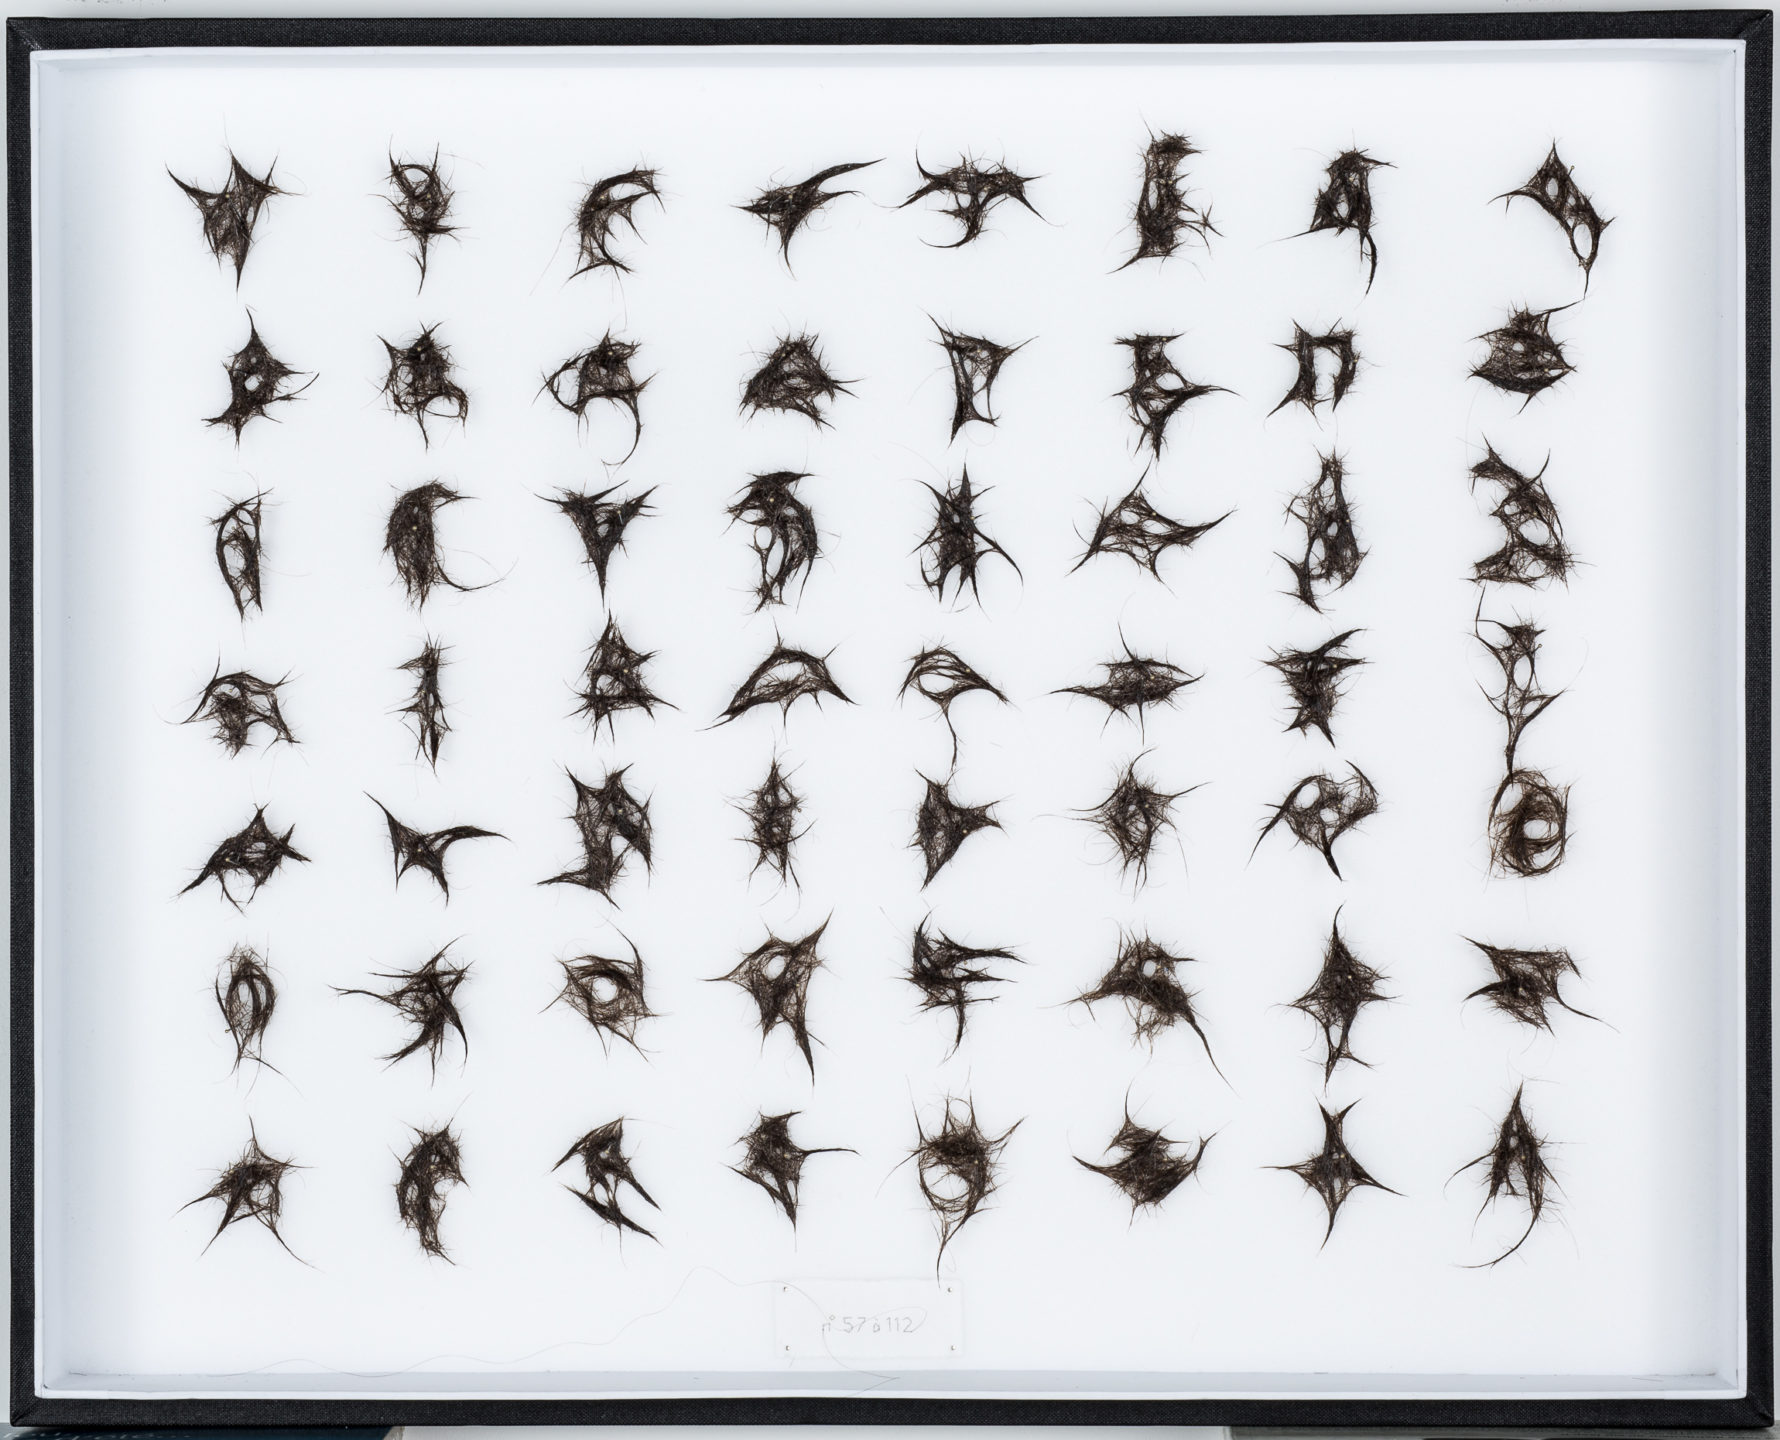 n° 57 à 112